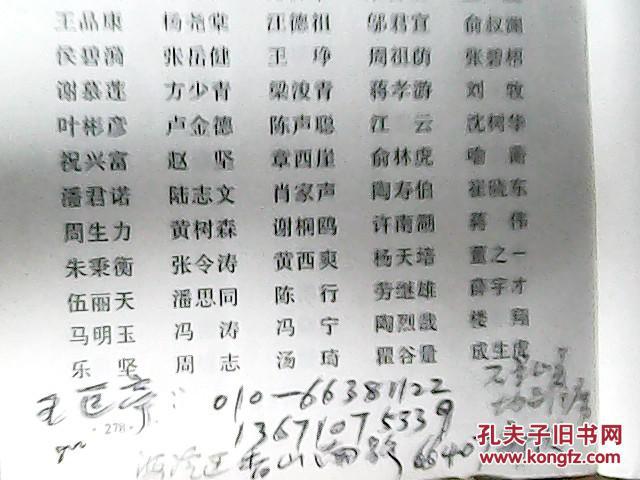 王品康 杨尧堂 江德祖 邬君宜 俞叔渊
侯碧漪 张岳健 王琤 周祖荫 张碧梧
谢慕莲 方少青 梁浚青 蒋孝游 刘牧
叶彬彦 卢金德 陈声聪 江云 沈树华
祝兴富 赵坚 章西崖 俞林虎 喻蘅
潘君诺 陆志文 肖家声 陶寿伯 崔晓东
周生力 黄树森 谢桐鸥 许南湖 蒋伟
朱秉衡 张令涛 黄西爽 杨天培 董之一
伍丽天 潘思同 陈行 劳继雄 薛宇才
马明玉 冯涛 冯宁 陶烈哉 楼翔
乐坚 周志 汤琦 瞿谷量 成生虎
010-66381122
·278·
13671075339
香山南路
孔夫子旧书网
www.kongfz.com